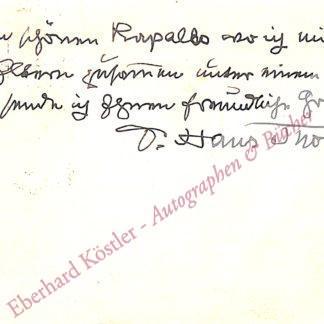 schönen Rapallo wo ich mi
Eltern zusammen unter einem
sende ich Ihnen freundliche Gr
D. Hans Tho
Eberhard Köstler - Autographen & Bücher